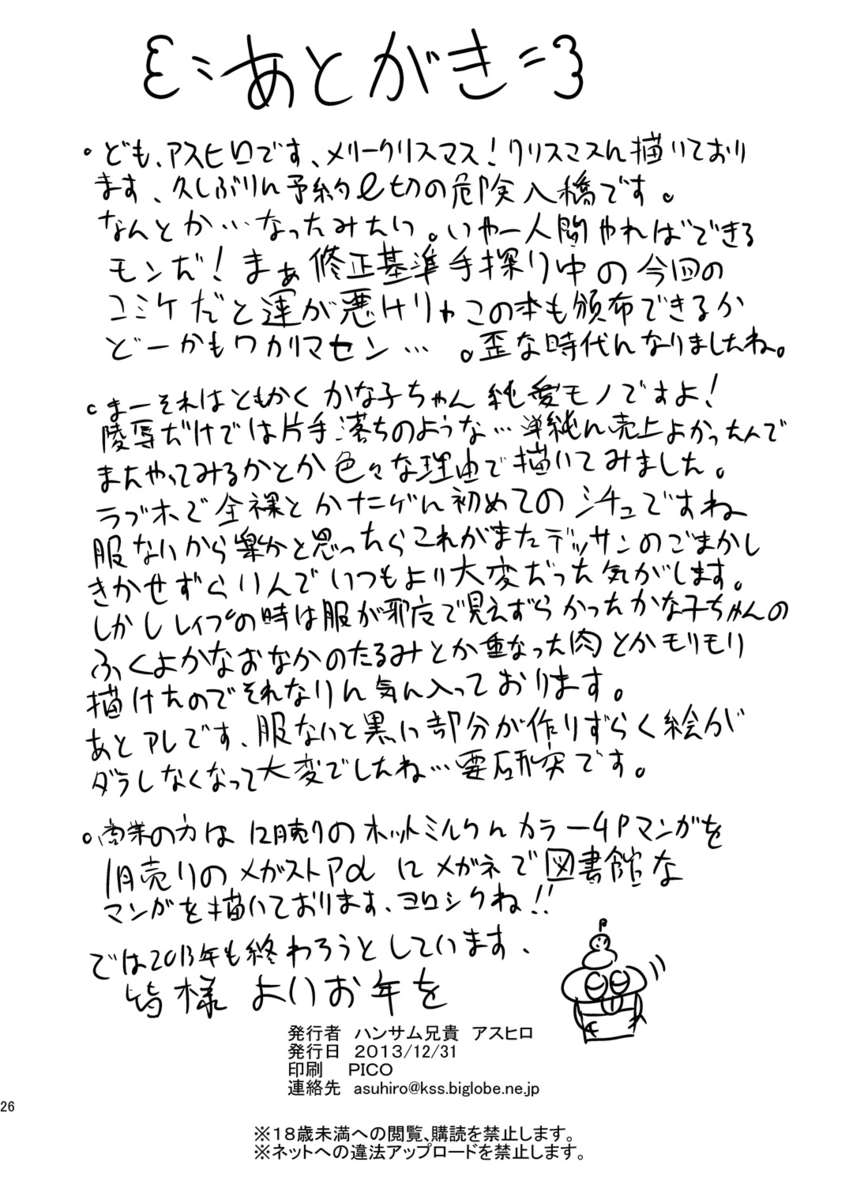 あとがき
。ども、アスヒロです、メリークリスマス！クリスマスに描いており
ます、久しぶりに予約〆切の危険入橋です。
なんとか…なったみたい。いやー人間やればできる
モンだ！まぁ修正基準手探り中の今回の
コミケだと運が悪けりゃこの本も頒布できるか
どーかもワカリマセン… 。歪な時代になりましたね。
。まーそれはともかくかな子ちゃん純愛モノですよ！
陵辱だけでは片手落ちのような…単純に売上よかったんで
またやってみるかとか色々な理由で描いてみました。
ラブホで全裸とかナニゲに初めてのシチュですね
服ないから楽かと思ったらこれがまたデッサンのごまかし
きかせずらいんでいつもより大変だった気がします。
しかしレイプの時は服が邪魔で見えずらかったかな子ちゃんの
ふくよかなおなかのたるみとか重なった肉とかモリモリ
描けたのでそれなりに気に入っております。
あとアレです、服ないと黒い部分が作りずらく絵が
ダラしなくなって大変でしたね…要研究です。
。商業の方は12月売りのホットミルクにカラー4Pマンガを
1月売りのメガストアαにメガネで図書館な
マンガを描いております、ヨロシクね!!
では2013年も終わろうとしています、
皆様よいお年を
発行者 ハンサム兄貴 アスヒロ
発行日 2013/12/31
印刷 PICO
連絡先 asuhiro@kss.biglobe.ne.jp
26
※18歳未満への閲覧、購読を禁止します。
※ネットへの違法アップロードを禁止します。